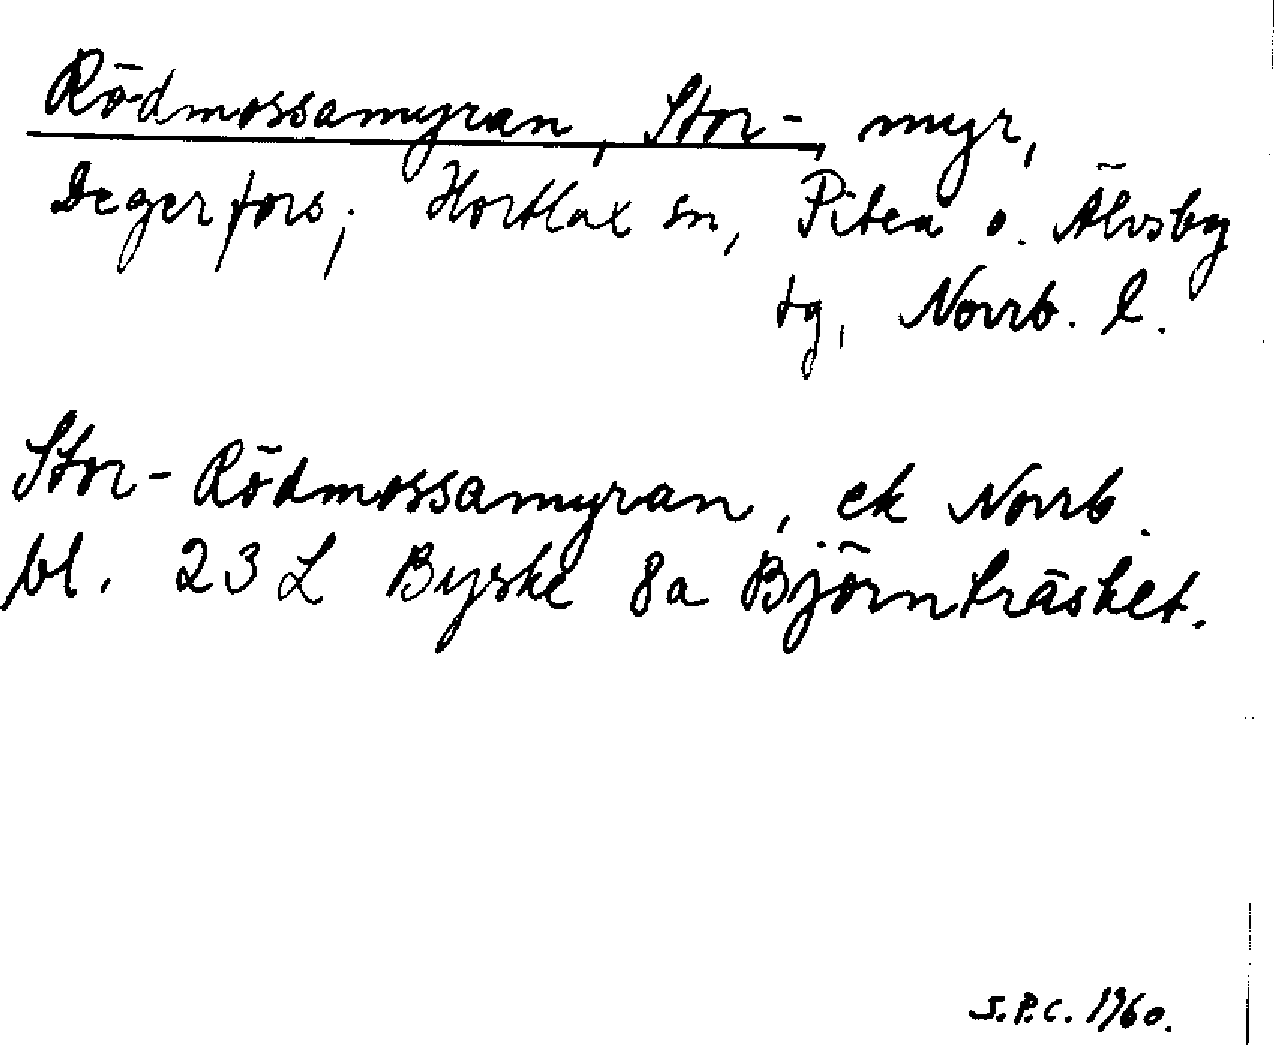 Rödmossamyran, Stor-, myr,
Degerfors; Hortlax sn, Pitea o. Älvsby
tg, Norrb. l.
Stor-Rödmossamyran, ek Norrb.
bl. 23 L Byske 8a Björnträsket.
S.P.C. 1960.